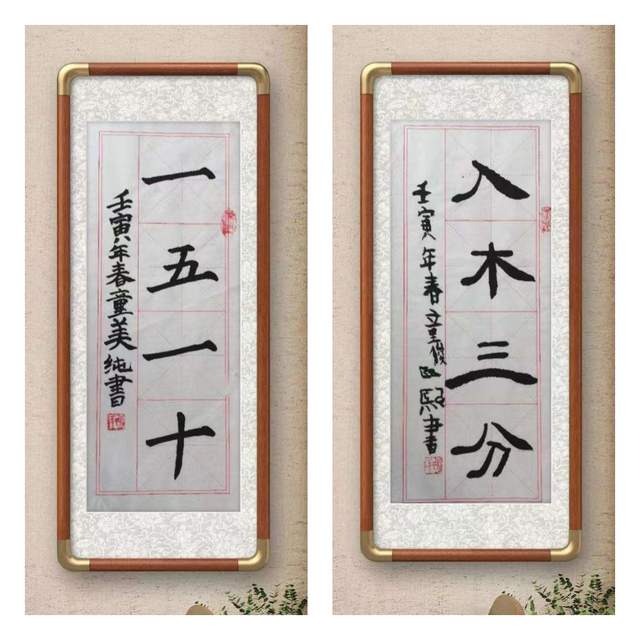 一五一十
壬寅年春童美纯書
入木三分
壬寅年春童俊熙書